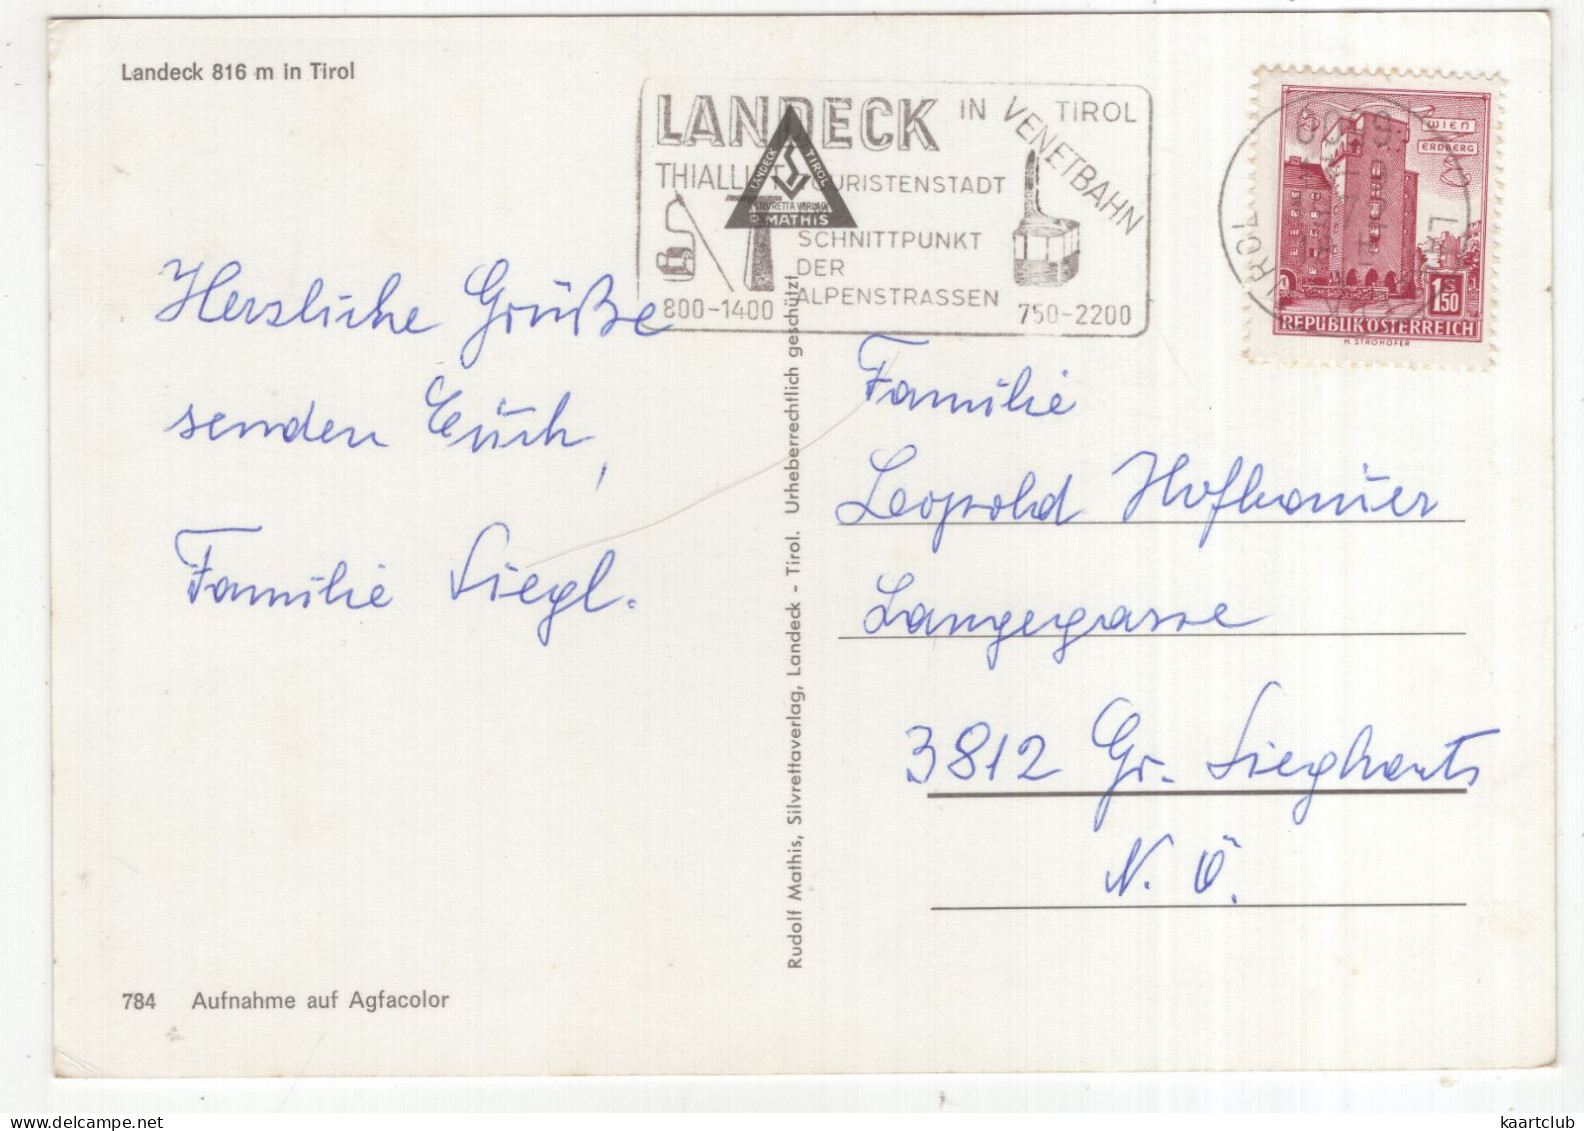 Landeck 816 m in Tirol
LANDECK IN TIROL
VENETBAHN
TOURISTENSTADT
SCHNITTPUNKT
DER
ALPENSTRASSEN
800-1400
750-2200
LANDECK TIROL
SILVRETTAVERLAG
R. MATHIS
WIEN
ERDBERG
1.50
S
REPUBLIK ÖSTERREICH
H. STROHOFER
Herzliche Grüße
senden Euch,
Familie Siegl.
Familie
Leopold Hofbauer
Langegasse
3812 Gr. Siegharts
N. Ö.
Rudolf Mathis, Silvrettaverlag, Landeck - Tirol. Urheberrechtlich geschützt
784 Aufnahme auf Agfacolor
www.delcampe.net
kaartclub